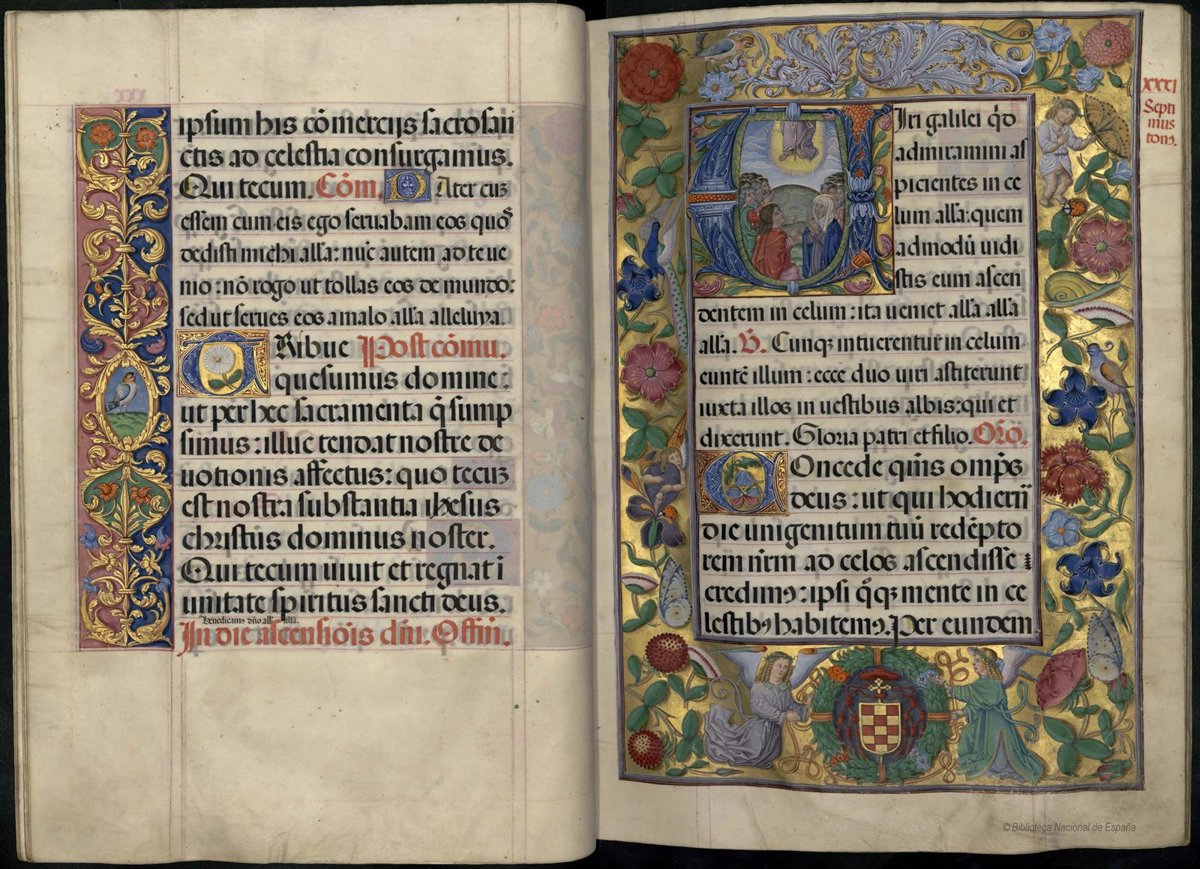 ipsum his cõmercijs sacrosan
ctis ad celestia consurgamus.
Qui tecum. Cõm. PAter cuʒ
essem cum eis ego seruabam eos quos
dedisti michi alla: nũc autem ad te ue
nio: nõ rogo ut tollas eos de mundo:
sed ut serues eos a malo alla alleluya.
TRibue Post cõmu.
quesumus domine:
ut per hec sacramenta q̃ sump
simus: illuc tendat nostre de
uotionis affectus: quo tecuʒ
est nostra substantia ihesus
christus dominus noster.
Qui tecum uiuit et regnat i
unitate spiritus sancti deus.
Benedicamꝰ dño alla alla.
In die ascensiõis dñi. Offm̃.
XXXI
Septi
mus
tonꝰ.
UIri galilei q̃d
admiramini as
picientes in ce
lum alla: quem
admodũ uidi
stis eum ascen
dentem in celum: ita ueniet alla alla
alla. V̄. Cunqʒ intuerentur in celum
euntẽ illum: ecce duo uiri astiterunt
iuxta illos in uestibus albis: qui et
dixerunt. Gloria patri et filio. Orõ.
COncede qm̃s omp̃s
deus: ut qui hodierñ
die unigenitum tuũ redẽpto
rem nr̃m ad celos ascendisse
credimꝰ: ipsi q̃qʒ mente in ce
lestibꝰ habitemꝰ. Per eundem
© Biblioteca Nacional de España